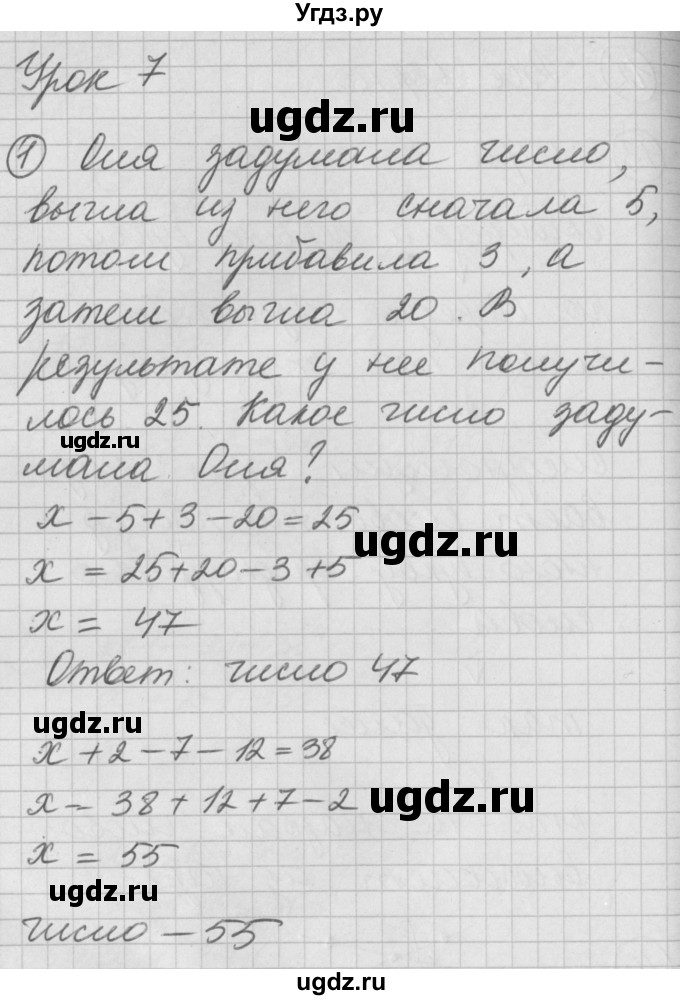 Угдз.ру
Урок 7
ugdz.ru
① Оля задумала число,
вычла из него сначала 5,
потом прибавила 3, а
затем вычла 20. В
результате у нее получи-
лось 25. Какое число заду-
ugdz.ru
мала Оля?
x - 5 + 3 - 20 = 25
ugdz.ru
x = 25 + 20 - 3 + 5
x = 47
Ответ: число 47
ugdz.ru
x + 2 - 7 - 12 = 38
x = 38 + 12 + 7 - 2
ugdz.ru
x = 55
ugdz.ru
число - 55
ugdz.ru